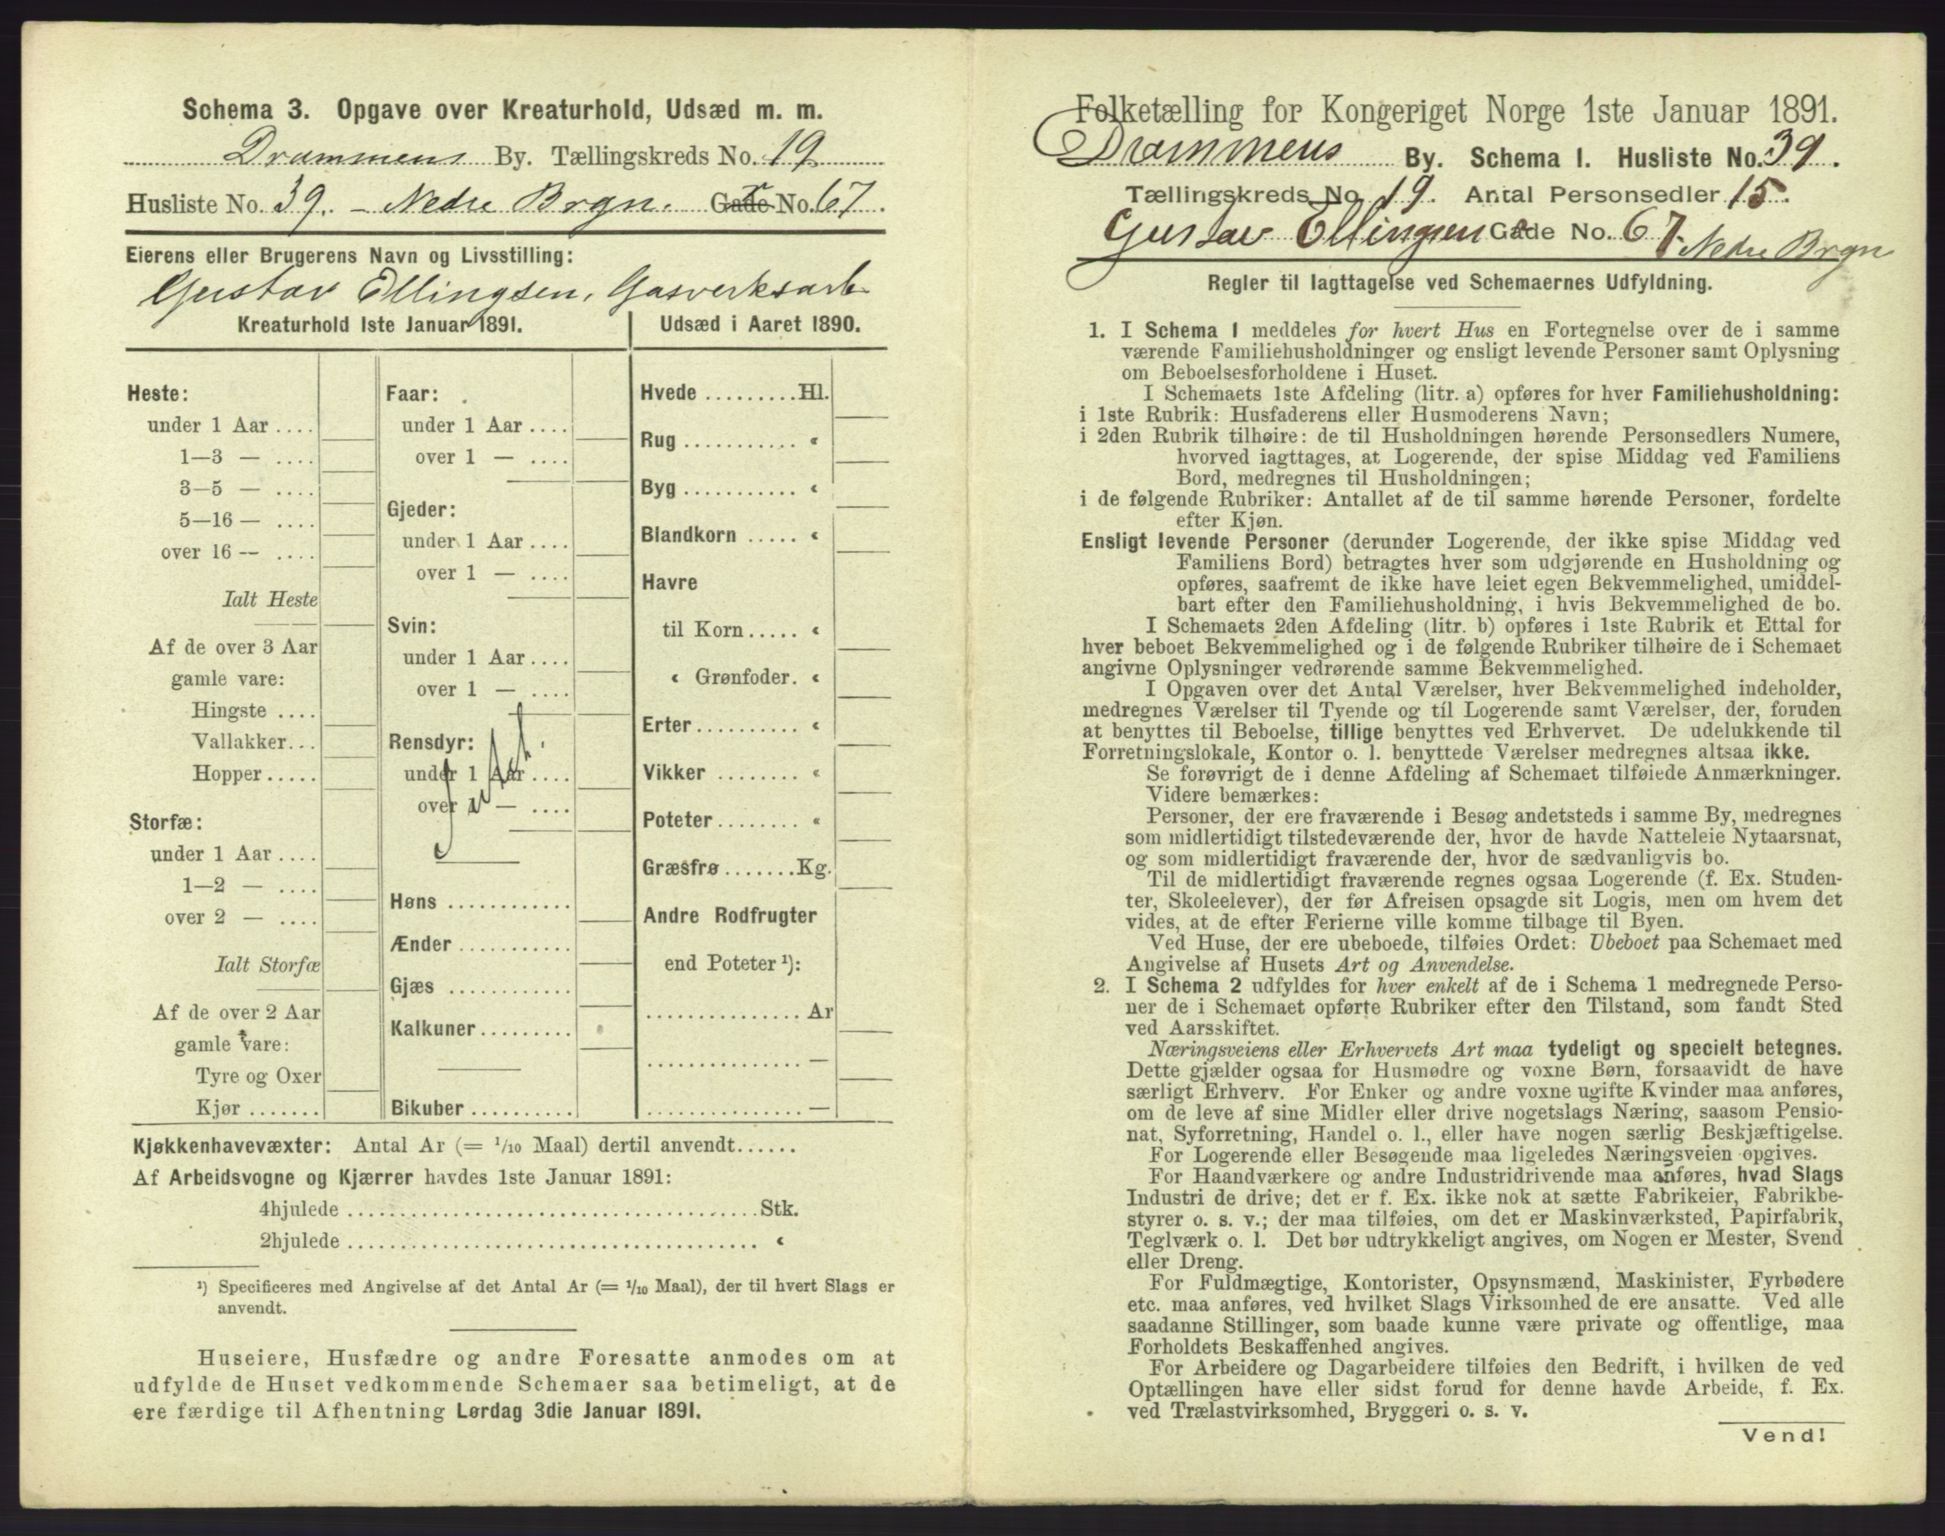 Schema 3. Opgave over Kreaturhold, Udsæd m. m.
Drammens By. Tællingskreds No. 19
Husliste No. 39. - Nedre Brgn. Gade No. 67.
Eierens eller Brugerens Navn og Livsstilling:
Gustav Ellingsen, Gasverksarb.
Kreaturhold 1ste Januar 1891.
Heste:
under 1 Aar ....
1—3 — ....
3—5 — ....
5—16 — ....
over 16 — ....
Ialt Heste
Af de over 3 Aar
gamle vare:
Hingste ....
Vallakker...
Hopper.....
Storfæ:
under 1 Aar ....
1—2 — ....
over 2 — ....
Ialt Storfæ
Af de over 2 Aar
gamle vare:
Tyre og Oxer
Kjør .......
Faar:
under 1 Aar ....
over 1 — ....
Gjeder:
under 1 Aar ....
over 1 — ....
Svin:
under 1 Aar ....
over 1 — ....
Rensdyr:
under 1 Aar ....
over 1 — ....
Høns ............
Ænder ...........
Gjæs ............
Kalkuner.........
Bikuber ..........
Udsæd i Aaret 1890.
Hvede .........Hl.
Rug ........... "
Byg ........... "
Blandkorn ..... "
Havre
til Korn ..... "
" Grønfoder. "
Erter .......... "
Vikker ......... "
Poteter ........ "
Græsfrø .......Kg.
Andre Rodfrugter
end Poteter ¹):
............... Ar
............... —
............... —
Kjøkkenhavevæxter: Antal Ar (= 1/10 Maal) dertil anvendt......
Af Arbeidsvogne og Kjærrer havdes 1ste Januar 1891:
4hjulede .......................................Stk.
2hjulede ....................................... "
¹) Specificeres med Angivelse af det Antal Ar (= 1/10 Maal), der til hvert Slags er
anvendt.
Huseiere, Husfædre og andre Foresatte anmodes om at
udfylde de Huset vedkommende Schemaer saa betimeligt, at de
ere færdige til Afhentning Lørdag 3die Januar 1891.
Folketælling for Kongeriget Norge 1ste Januar 1891.
Drammens By. Schema 1. Husliste No. 39.
Tællingskreds No. 19. Antal Personsedler 15.
Gustav Ellingsen Gade No. 67. Nedre Brgn
Regler til Iagttagelse ved Schemaernes Udfyldning.
1. I Schema 1 meddeles for hvert Hus en Fortegnelse over de i samme
værende Familiehusholdninger og ensligt levende Personer samt Oplysning
om Beboelsesforholdene i Huset.
I Schemaets 1ste Afdeling (litr. a) opføres for hver Familiehusholdning:
i 1ste Rubrik: Husfaderens eller Husmoderens Navn;
i 2den Rubrik tilhøire: de til Husholdningen hørende Personsedlers Numere,
hvorved iagttages, at Logerende, der spise Middag ved Familiens
Bord, medregnes til Husholdningen;
i de følgende Rubriker: Antallet af de til samme hørende Personer, fordelte
efter Kjøn.
Ensligt levende Personer (derunder Logerende, der ikke spise Middag ved
Familiens Bord) betragtes hver som udgjørende en Husholdning og
opføres, saafremt de ikke have leiet egen Bekvemmelighed, umiddel-
bart efter den Familiehusholdning, i hvis Bekvemmelighed de bo.
I Schemaets 2den Afdeling (litr. b) opføres i 1ste Rubrik et Ettal for
hver beboet Bekvemmelighed og i de følgende Rubriker tilhøire de i Schemaet
angivne Oplysninger vedrørende samme Bekvemmelighed.
I Opgaven over det Antal Værelser, hver Bekvemmelighed indeholder,
medregnes Værelser til Tyende og til Logerende samt Værelser, der, foruden
at benyttes til Beboelse, tillige benyttes ved Erhvervet. De udelukkende til
Forretningslokale, Kontor o. l. benyttede Værelser medregnes altsaa ikke.
Se forøvrigt de i denne Afdeling af Schemaet tilføiede Anmærkninger.
Videre bemærkes:
Personer, der ere fraværende i Besøg andetsteds i samme By, medregnes
som midlertidigt tilstedeværende der, hvor de havde Natteleie Nytaarsnat,
og som midlertidigt fraværende der, hvor de sædvanligvis bo.
Til de midlertidigt fraværende regnes ogsaa Logerende (f. Ex. Studen-
ter, Skoleelever), der før Afreisen opsagde sit Logis, men om hvem det
vides, at de efter Ferierne ville komme tilbage til Byen.
Ved Huse, der ere ubeboede, tilføies Ordet: Ubeboet paa Schemaet med
Angivelse af Husets Art og Anvendelse.
2. I Schema 2 udfyldes for hver enkelt af de i Schema 1 medregnede Perso-
ner de i Schemaet opførte Rubriker efter den Tilstand, som fandt Sted
ved Aarsskiftet.
Næringsveiens eller Erhvervets Art maa tydeligt og specielt betegnes.
Dette gjælder ogsaa for Husmødre og voxne Børn, forsaavidt de have
særligt Erhverv. For Enker og andre voxne ugifte Kvinder maa anføres,
om de leve af sine Midler eller drive nogetslags Næring, saasom Pensio-
nat, Syforretning, Handel o. l., eller have nogen særlig Beskjæftigelse.
For Logerende eller Besøgende maa ligeledes Næringsveien opgives.
For Haandværkere og andre Industridrivende maa anføres, hvad Slags
Industri de drive; det er f. Ex. ikke nok at sætte Fabrikeier, Fabrikbe-
styrer o. s. v.; der maa tilføies, om det er Maskinværksted, Papirfabrik,
Teglværk o. l. Det bør udtrykkeligt angives, om Nogen er Mester, Svend
eller Dreng.
For Fuldmægtige, Kontorister, Opsynsmænd, Maskinister, Fyrbødere
etc. maa anføres, ved hvilket Slags Virksomhed de ere ansatte. Ved alle
saadanne Stillinger, som baade kunne være private og offentlige, maa
Forholdets Beskaffenhed angives.
For Arbeidere og Dagarbeidere tilføies den Bedrift, i hvilken de ved
Optællingen have eller sidst forud for denne havde Arbeide, f. Ex.
ved Trælastvirksomhed, Bryggeri o. s. v.
Vend!